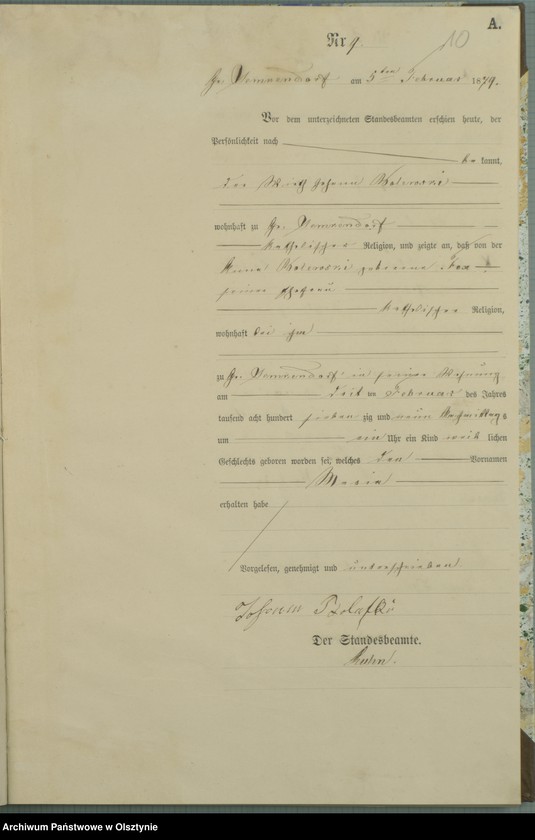 A.
Nr. 9.
10
Gr. am 5ten Februar 1879.
Vor dem unterzeichneten Standesbeamten erschien heute, der
Persönlichkeit nach
be kannt,
der Johann
wohnhaft zu Gr.
katholischer Religion, und zeigte an, daß von der
Anna geborene
seiner Ehefrau
katholischer Religion,
wohnhaft bei ihm
zu Gr. in seiner Wohnung
am Februar des Jahres
tausend acht hundert sieben zig und neun Nachmittag s
um ein Uhr ein Kind weib lichen
Geschlechts geboren worden sei, welches den Vornamen
Maria
erhalten habe
Vorgelesen, genehmigt und unterschrieben
Johann
Der Standesbeamte.
Archiwum Państwowe w Olsztynie